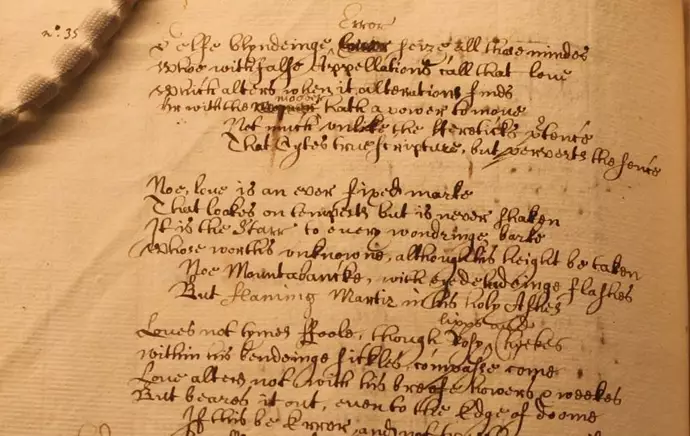 Error
n.º 35
Selfe blyndeinge Error seize all those mindes
Who with false Appellations call that love
Which alters when it alterations finds
moover
Or with the hath a power to move
Not much unlike the Hereticks ptence
That Cytes true scripture, but perverts the sence
Noe, love is an ever fixed marke
That lookes on tempests but is never shaken
It is the Starr to every wondringe barke
Whose worths unknowne, although his height be taken
Noe Mountabancke, with eye deludeinge flashes
But flaming Martir in his holy Ashes
lipps and
Loves not tymes Foole, though Rosy Cheekes
within his bendeinge sickles, compasse come
Love alters not with his breefe howers & weekes
But beares it out, even to the Edge of doome
If this be Error, and not